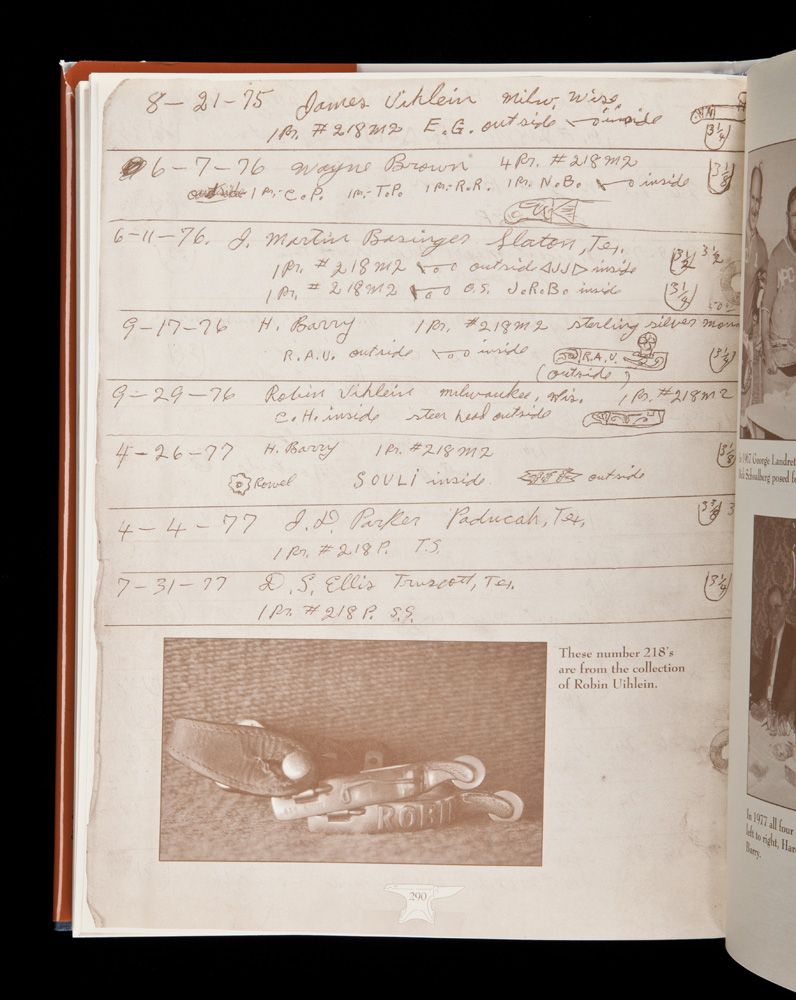 8-21-75 James Vihlein Milw. Wisc
1 Pr. # 218 M2 E.G. outside inside
3 1/4
6-7-76 Wayne Brown 4 Pr. # 218 M2
3 1/8
1 Pr.-C.P. 1 Pr.-T.P. 1 Pr.-R.R. 1 Pr. N.B. inside
6-11-76. J. Martin Basinger Slaton, Tex.
1 Pr. # 218 M2 outside inside
3 1/2 3 1/2
1 Pr. # 218 M2 O.S. J.R.B. inside
3 1/4
9-17-76 H. Barry 1 Pr. # 218 M2 sterling silver
R.A.U. outside inside R.A.U.
3 1/4
(outside)
9-29-76 Robin Vihlein Milwaukee, Wis. 1 Pr. # 218 M2
C.H. inside steer head outside
4-26-77 H. Barry 1 Pr. # 218 M2
3 1/8
Rowel SOULI inside. outside
4-4-77 J.D. Parker Paducah, Tex.
1 Pr. # 218 P. T.S.
7-31-77 D.S. Ellis Truscott, Tex.
3 1/4
1 Pr. # 218 P. S.S.
These number 218's
are from the collection
of Robin Uihlein.
ROBI
290
1967 George Landret
Schoalberg posed f
In 1977 all four
left to right, Har
Barry.